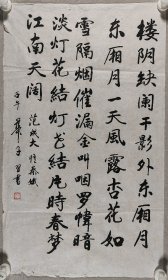 楼阴缺阑干影卧东厢月
东厢月一天風露杏花如
雪隔烟催漏金虬咽罗帏暗
淡灯花结灯花结片時春梦
江南天阔
范成大忆秦娥
书